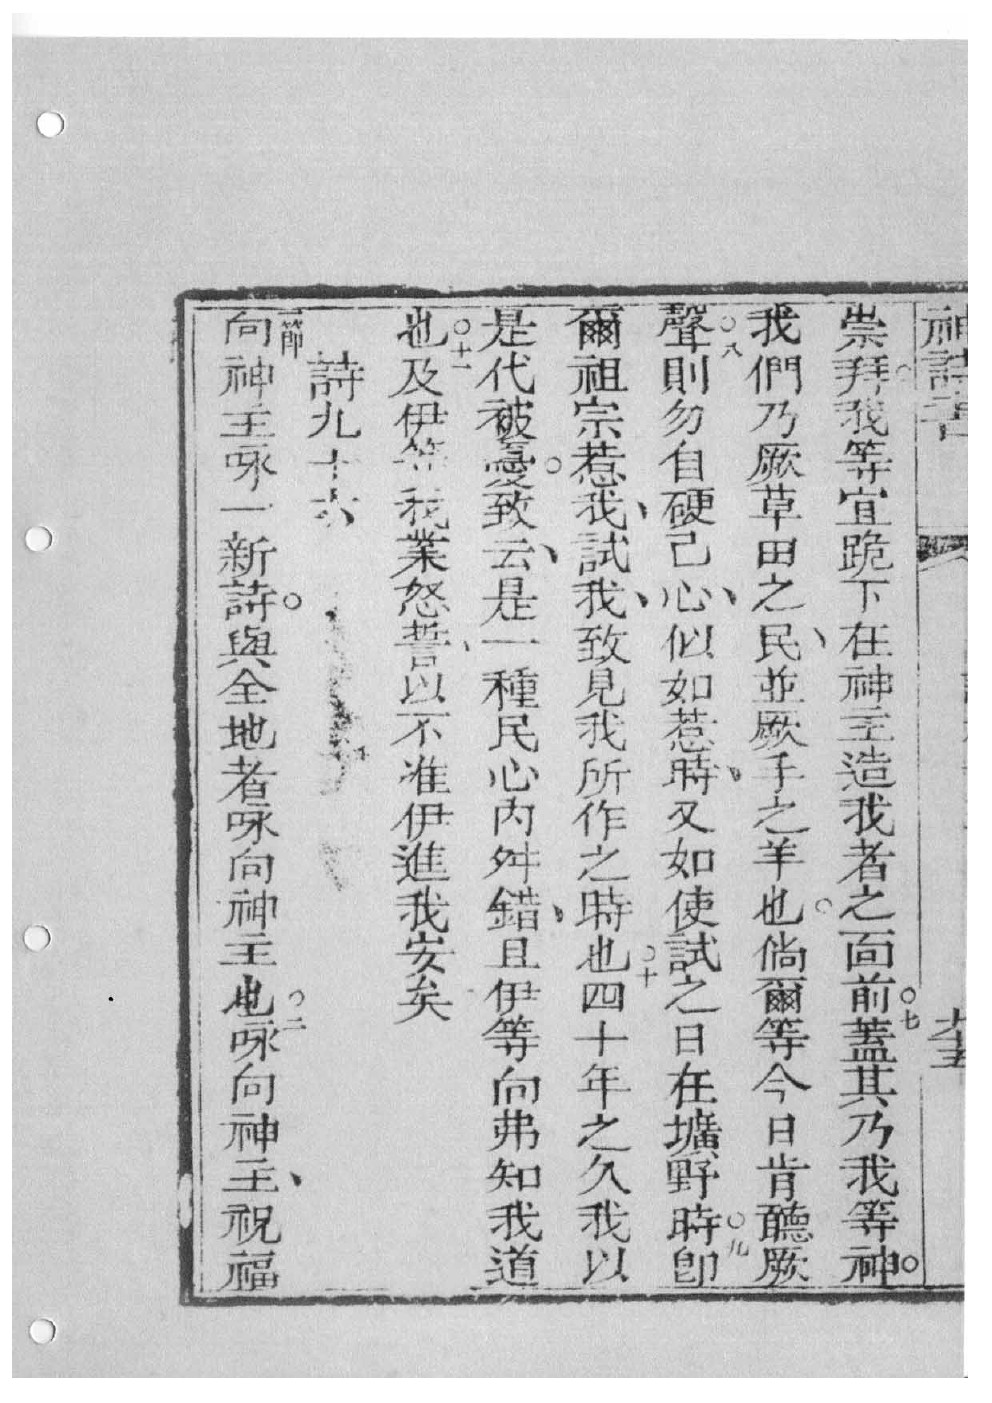 神詩書
崇拜我等宜跪下在神主造我者之面前○七蓋其乃我等神○
我們乃厥草田之民、並厥手之羊也○倘爾等今日肯聽厥
聲○八則勿自硬己心、似如惹時、又如使試之日在壙野時○九卽
爾祖宗惹我、試我、致見我所作之時也○十四十年之久我以
是代被憂○致云、是一種民心內舛錯、且伊等向弗知我道
也○十一及伊等我業怒誓、以不准伊進我安矣
詩九十六
一節向神主咏一新詩○與全地者咏向神主也○二咏向神主、祝福